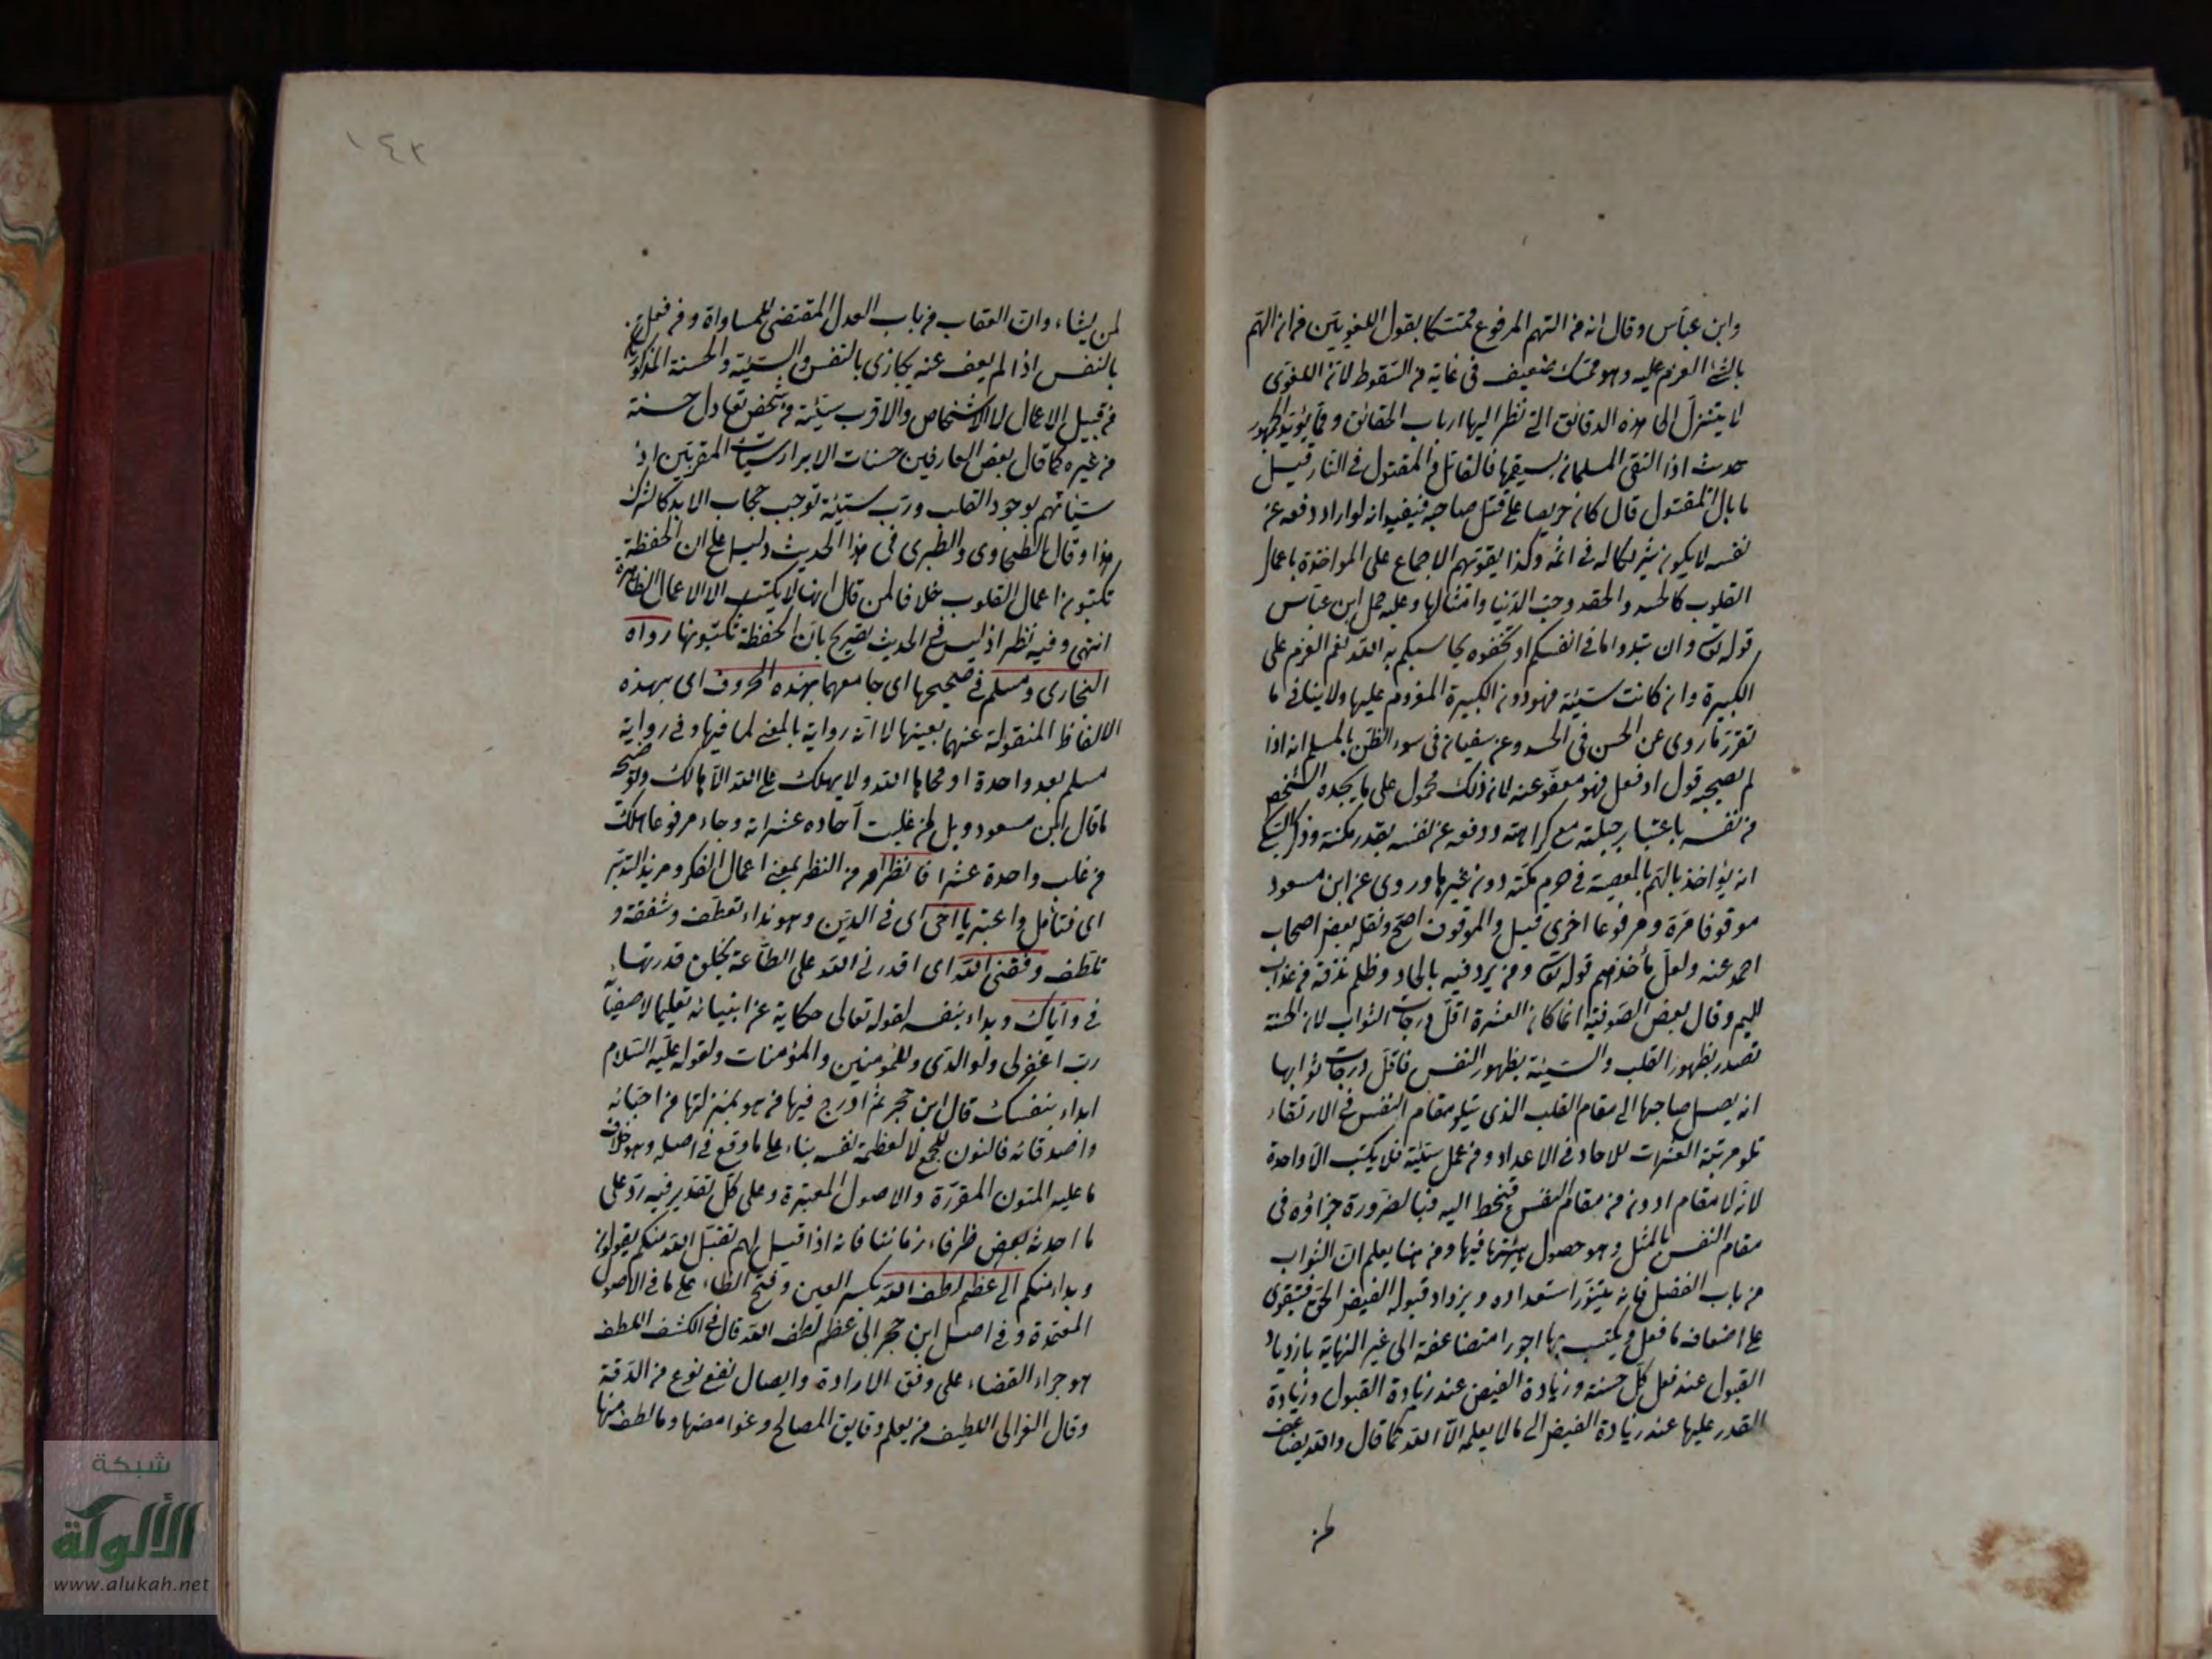 وابن عباس وقال انه من الهم المرفوع متمسكا بقول اللغويين من ان الهم
بالشئ العزم عليه وهو متمسك ضعيف في غاية من السقوط لان اللغوى
لا يتنزل الى هذه الدقائق التي نظر اليها ارباب الحقائق ومما يؤيد الجمهور
حديث اذا التقى المسلمان بسيفهما فالقاتل والمقتول في النار قيل
ما بال المقتول قال كان حريصا على قتل صاحبه فيفيد انه لو اراد دفعه عن
نفسه لا يكون شريكا له في اثمه وكذا يقويهم الاجماع على المواخذة باعمال
القلوب كالحسد والحقد وحب الدنيا وامثالها وعليه حمل ابن عباس
قوله تع وان تبدوا ما في انفسكم او تخفوه يحاسبكم به الله نعم العزم على
الكبيرة وان كانت سيئة فهو دون الكبيرة المعزوم عليها ولا ينافي ما
تقرر ما روى عن الحسن في الحسد وعن سفيان في سوء الظن بالمسلم انه اذا
لم يصحبه قول او فعل فهو معفو عنه لان ذلك محمول على ما يجده الشخص
من نفسه باعتبار جبلته مع كراهته ودفعه عن نفسه بقدر مكنته وذكر السبكي
انه يؤاخذ بالهم بالمعصية في حرم مكة دون غيرها وروى عن ابن مسعود
موقوفا مرة ومرفوعا اخرى قيل والموقوف اصح ونقله بعض اصحاب
احمد عنه ولعل مأخذهم قوله تع ومن يرد فيه بالحاد بظلم نذقه من عذاب
اليم وقال بعض الصوفية انما كان العشرة اقل درجات الثواب لان الحسنة
تصدر بظهور القلب والسيئة بظهور النفس فاقل درجات ثوابها
انه يصل صاحبها الى مقام القلب الذى يتلو مقام النفس في الارتقاء
تلو مرتبة العشرات للاحاد في الاعداد ومن عمل سيئة فلا يكتب الا واحدة
لانه لا مقام ادون من مقام النفس فينحط اليه فبالضرورة جزاؤه في
مقام النفس بالمثل وهو حصول هيئتها فيها ومن هنا يعلم ان الثواب
من باب الفضل فانه يتنور استعداده ويزداد قبوله الفيض الحق فيتقوى
على اضعاف ما فعل ويكتب بها اجورا متضاعفة الى غير النهاية بازدياد
القبول عند فعل كل حسنة وزيادة الفيض عند زيادة القبول وزيادة
القدر عليها عند زيادة الفيض الى ما لا يعلمه الا الله كما قال والله يضاعف
لمن
١٤٣
لمن يشاء وان العقاب من باب العدل المقتضى للمساواة ومن فعل
بالنفس اذا لم يعف عنه يجازى بالنفس والسيئة والحسنة المذكورتان
من قبيل الاعمال لا الاشخاص والاقرب سيئة من شخص تعادل حسنة
من غيره كما قال بعض العارفين حسنات الابرار سيات المقربين اذ
سيئاتهم بوجود القلب ورب سيئة توجب حجاب الابد كالشرك
هذا وقال الطحاوى والطبرى في هذا الحديث دليل على ان الحفظة
تكتبون اعمال القلوب خلافا لمن قال انها لا يكتب الا الاعمال الظاهرة
انتهى وفيه نظر اذ ليس في الحديث تصريح بان الحفظة تكتبونها رواه
البخارى ومسلم في صحيحيها اى جامعهما بهذه الحروف اى بهذه
الالفاظ المنقولة عنهما بعينها لا انه رواية بالمعنى لما فيها وفي رواية
مسلم بعد واحدة او محاها الله ولا يهلك على الله الا هالك ويوضحه
ما قال ابن مسعود ويل لمن غلبت آحاده عشراته وجاء مرفوعا هلك
من غلب واحدة عشرا فانظر امر من النظر بمعنى اعمال الفكر ومزيد التدبر
اى فتأمل واعتبر يا اخى اى في الدين وهو نداء تعطف وشفقة و
تلطف وفقنى الله اى اقدرنى الله على الطاعة بخلق قدرتها
في واياك وبداء بنفسه لقوله تعالى حكاية عن انبيائه تعليما لاصفيائه
رب اغفرلى ولوالدى وللمؤمنين والمؤمنات ولقوله عليه السلام
ابداء بنفسك قال ابن حجر ثم ادرج فيها من هو بمنزلتها من احبائه
واصدقائه فالنون للجمع لا لعظمة نفسه بناء على ما وقع في اصله وهو خلاف
ما عليه المتون المقررة والاصول المعتبرة وعلى كل تقدير فيه رد على
ما احدثه بعض ظرفاء زماننا فانه اذا قيل لهم تقبل الله منكم يقولون
وبداء منكم الى عظم لطف الله بكسر العين وفتح الظاء على ما في الاصول
المعتمدة وفي اصل ابن حجر الى عظم لطف الله قال في الكشف اللطف
هو جراء القضاء على وفق الارادة وايصال نفع نوع من الدقة
وقال الغزالى اللطيف من يعلم دقايق المصالح وغوامضها وما لطف منها
شبكة
الألوكة
www.alukah.net